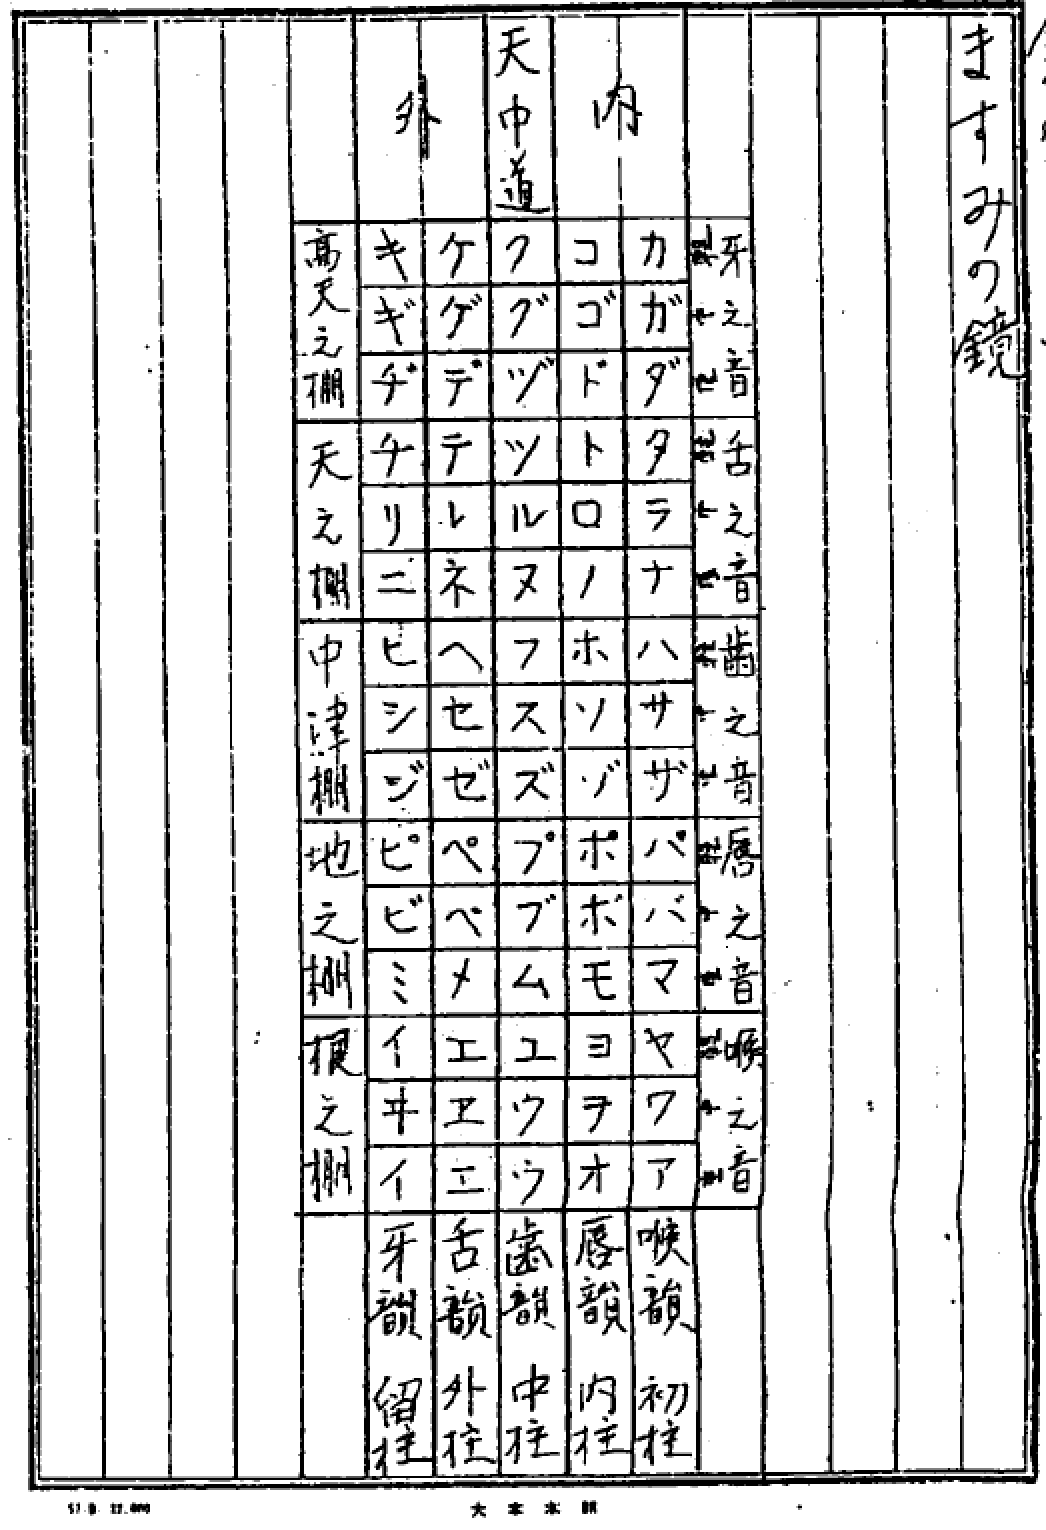 ますみの鏡
牙之音 舌之音 歯之音 唇之音 喉之音
内
カ ガ ダ タ ラ ナ ハ サ ザ パ バ マ ヤ ワ ア 喉韻 初柱
コ ゴ ド ト ロ ノ ホ ソ ゾ ポ ボ モ ヨ ヲ オ 唇韻 内柱
天中道 ク グ ヅ ツ ル ヌ フ ス ズ プ ブ ム ユ ウ ウ 歯韻 中柱
外
ケ ゲ デ テ レ ネ ヘ セ ゼ ペ ベ メ エ ヱ エ 舌韻 外柱
キ ギ ヂ チ リ ニ ヒ シ ジ ピ ビ ミ イ ヰ イ 牙韻 留柱
高天之棚 天之棚 中津棚 地之棚 根之棚
大本本部